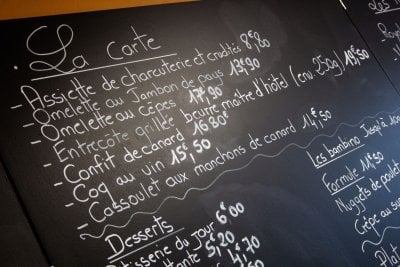 La Carte
- Assiette de charcuterie et crudités 8€80
- Omelette au Jambon de pays 13€90
- Omelette au Cèpes 17€90
- Entrecôte grillée beurre maître d'hôtel (env. 250g) 19€50
- Confit de canard 16€80
- Coq au vin 15€50
- Cassoulet aux manchons de canard 14€50
Desserts
Pâtisserie du Jour 6€00
5€20
4€70
Les bambino Jusqu'à
Formule 11€50
Nuggets de poulet
Crêpe au su
Plat